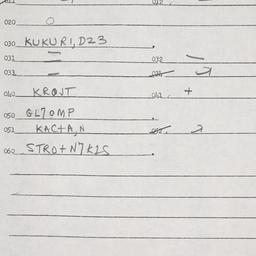 020 O
030 KUKURI, DZ3
031 =
032 —
033 —
040 KROJT
042 +
050 GL7OMP
051 KACTA,N
060 STRO+N7KLS